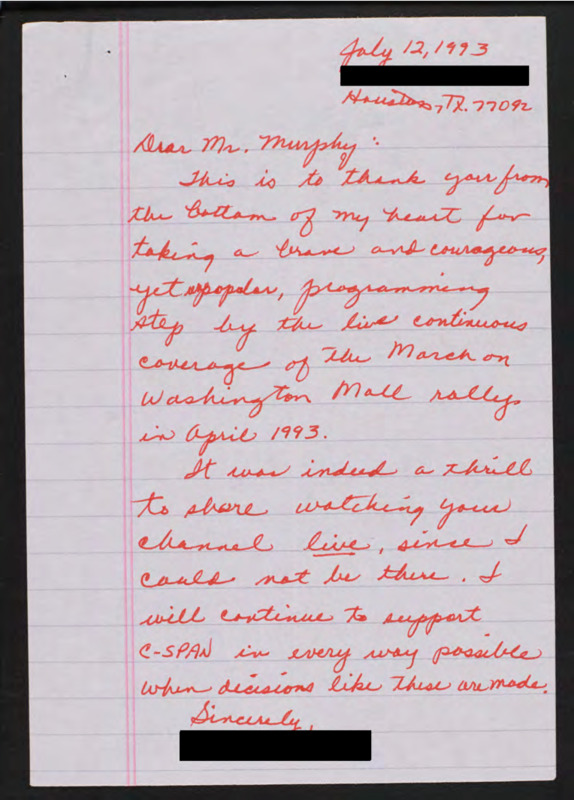 July 12, 1993
Houston, TX. 77092
Dear Mr. Murphy:
This is to thank you from
the bottom of my heart for
taking a brave and courageous,
yet unpopular, programming
step by the live continuous
coverage of the March on
Washington Mall rallys
in April 1993.
It was indeed a thrill
to share watching your
channel live, since I
could not be there. I
will continue to support
C-SPAN in every way possible
when decisions like these are made.
Sincerely,